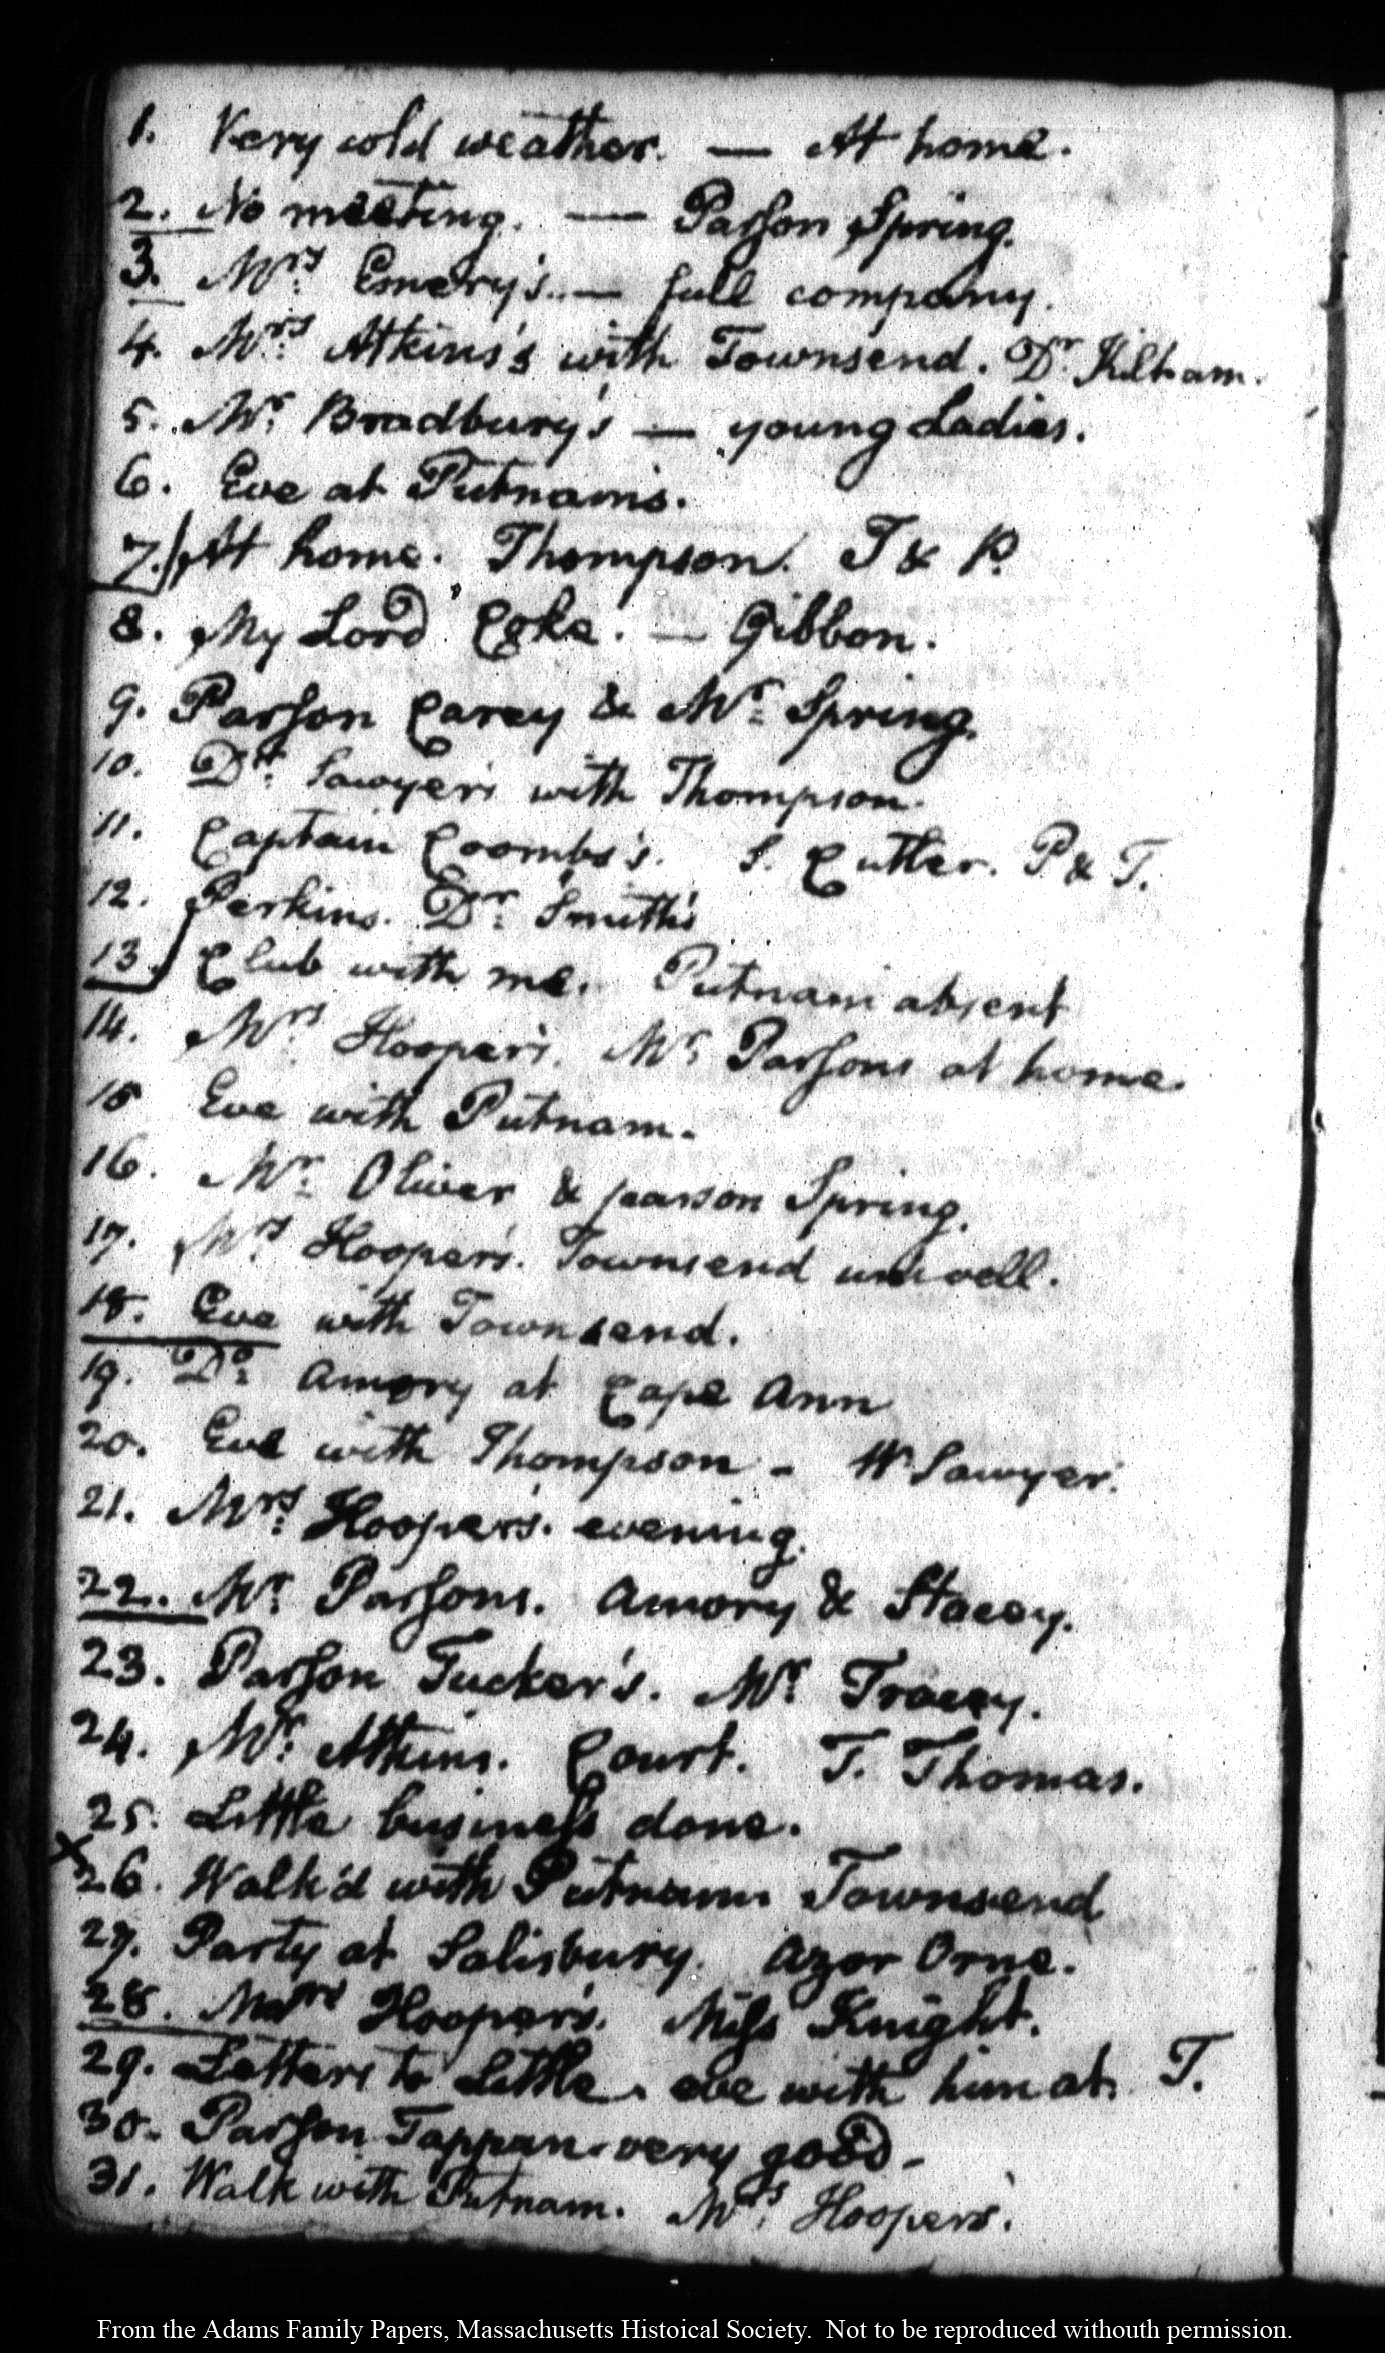 1. Very cold weather. — At home.
2. No meeting. — Parson Spring.
3. Mrs. Emery's. — full company.
4. Mrs. Atkins's with Townsend. Dr. Kilham.
5. Mr. Bradbury's — young Ladies.
6. Eve at Putnam's.
7. At home. Thompson. T & P.
8. My Lord Coke. — Gibbon.
9. Parson Carey & Mr. Spring.
10. Dr. Sawyer's with Thompson.
11. Captain Coombs's. S. Cutler. P & T.
12. Perkins. Dr. Smith's
13. Club with me. Putnam absent
14. Mrs. Hooper's. Mr. Parsons at home.
15 Eve with Putnam.
16. Mr. Oliver & parson Spring.
17. Mrs. Hooper's. Townsend unwell.
18. Eve with Townsend.
19. Do. Amory at Cape Ann
20. Eve with Thompson - W Sawyer.
21. Mrs. Hooper's. evening.
22. Mr. Parsons. Amory & Stacey.
23. Parson Tucker's. Mr. Tracey.
24. Mr. Atkins. Court. T. Thomas.
25. Little business done.
x 26. Walk'd with Putnam. Townsend
27. Party at Salisbury. Azor Orne.
28. Mrs Hooper's. Miss Knight.
29. Letters to Little. eve with him at T.
30. Parson Tappan. very good -
31. Walk with Putnam. Mrs. Hooper's.
From the Adams Family Papers, Massachusetts Histoical Society. Not to be reproduced withouth permission.